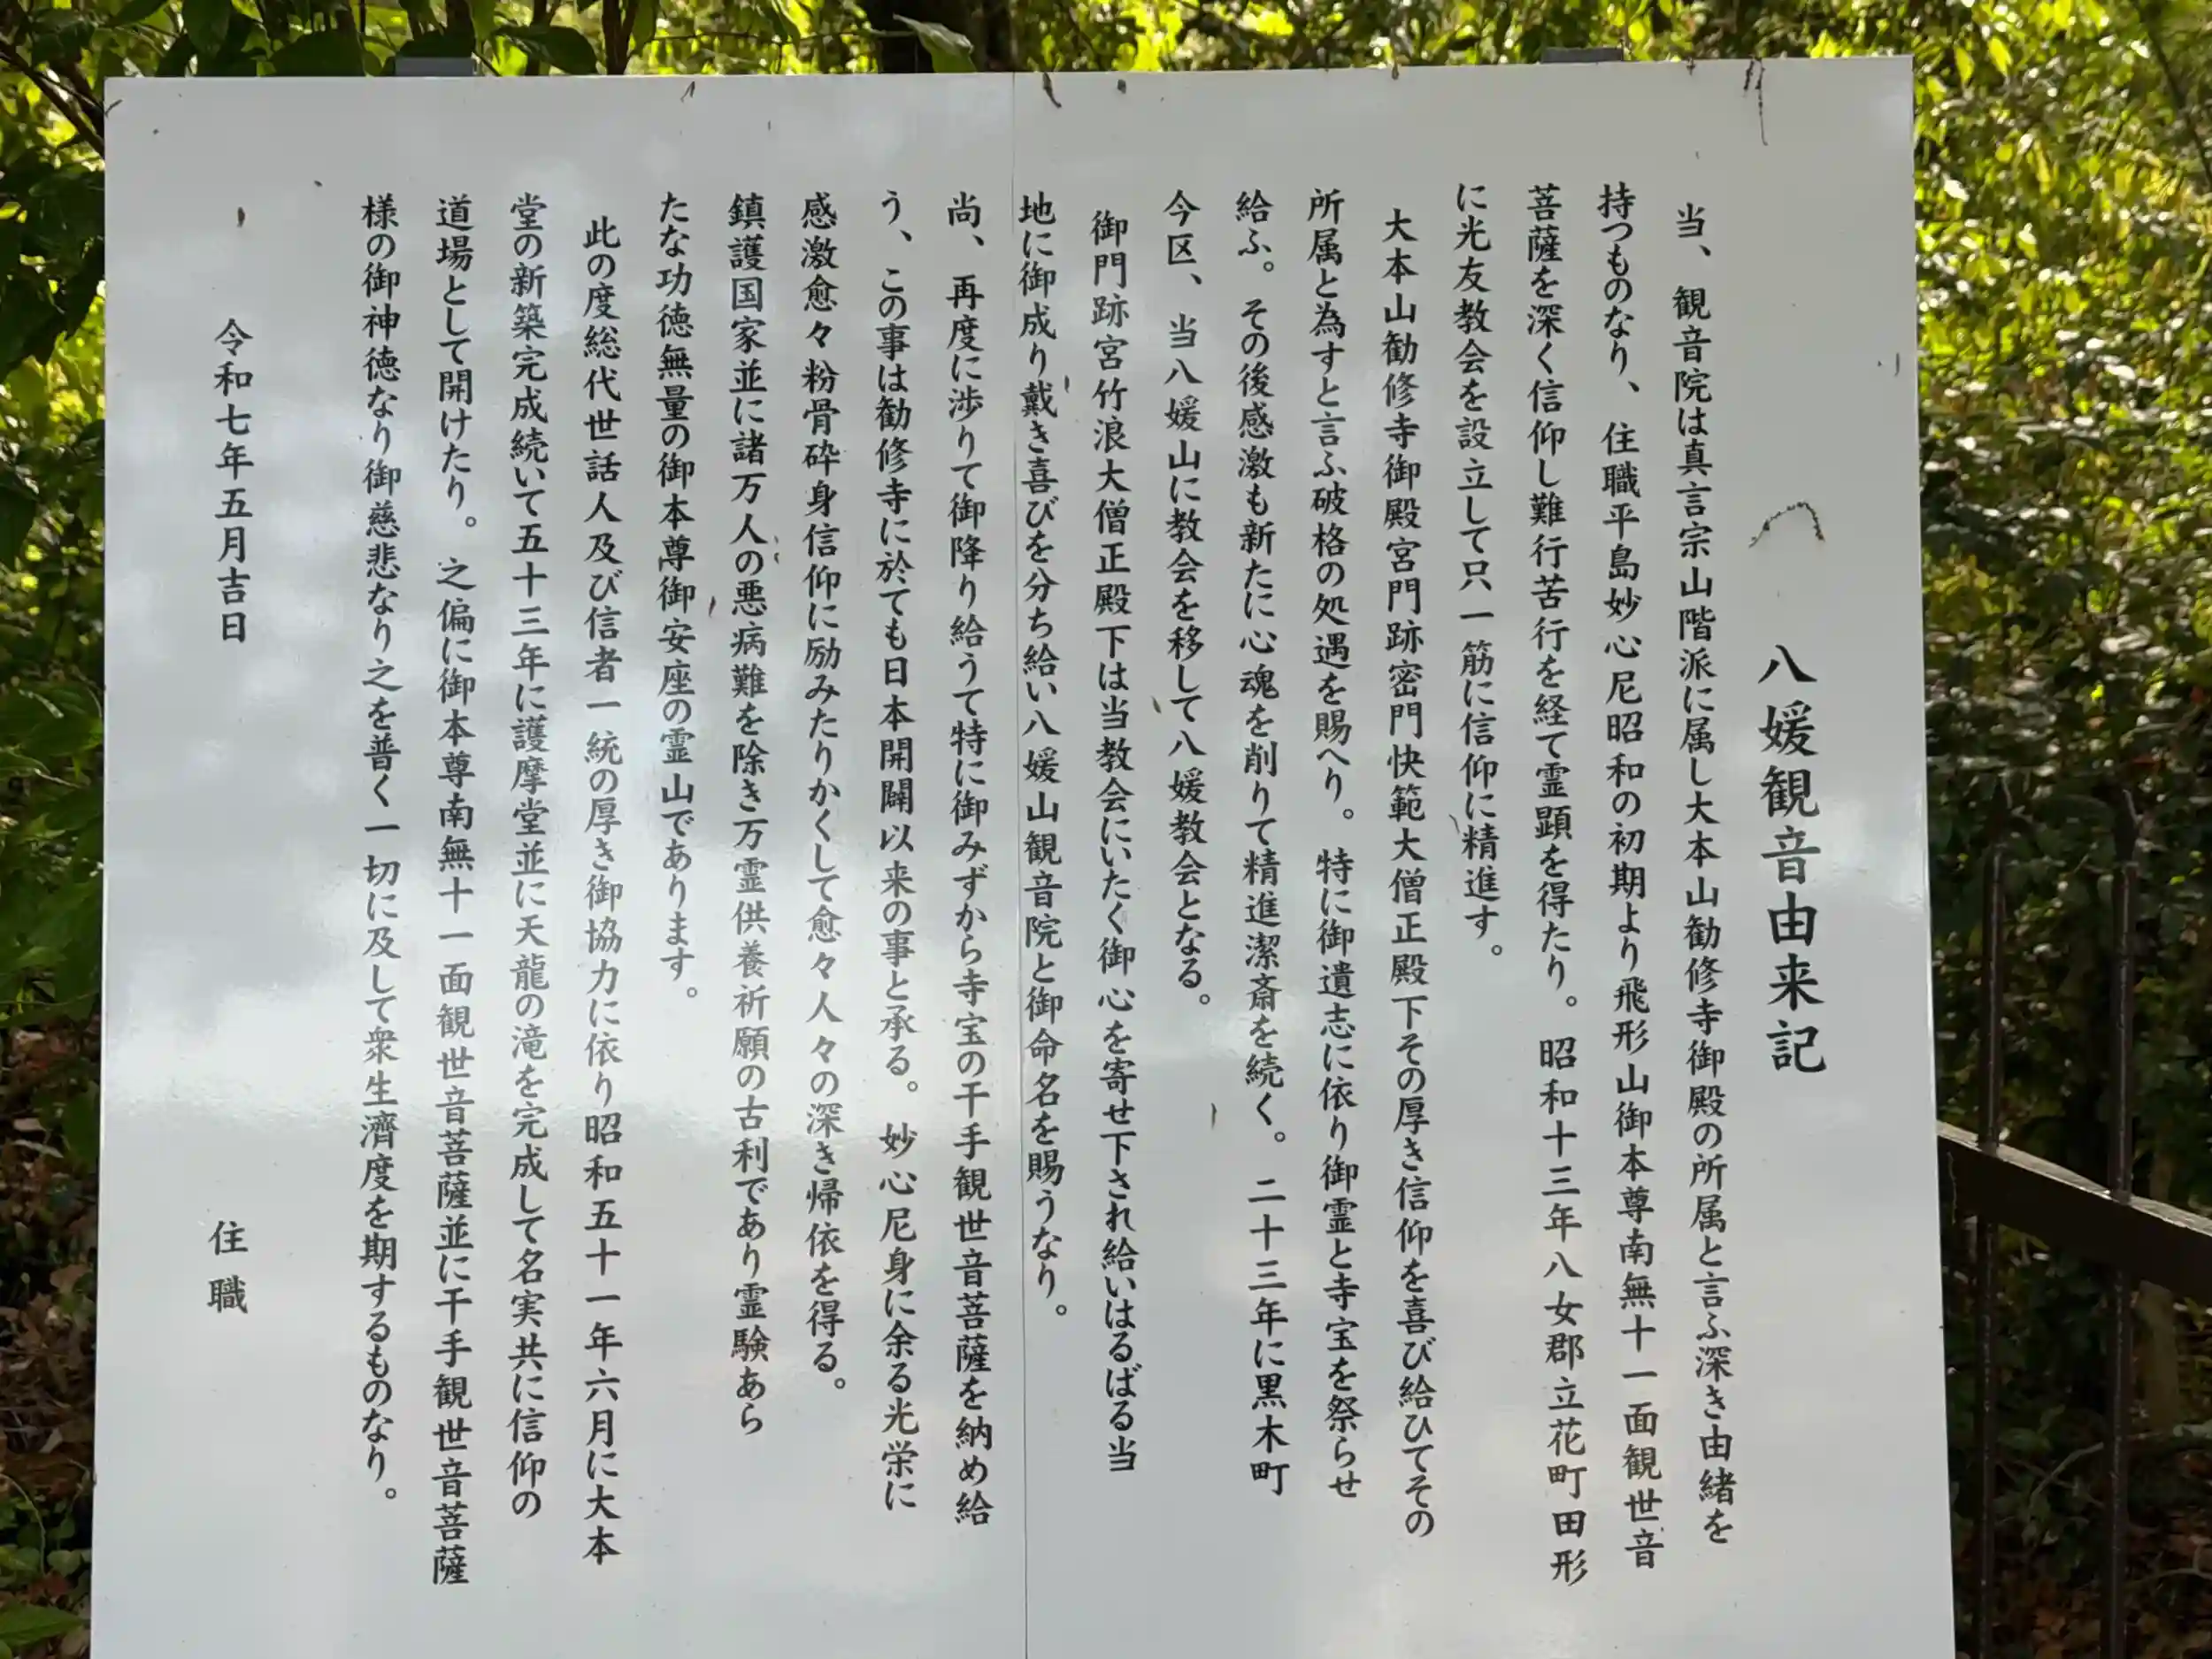 八媛観音由来記
当、観音院は真言宗山階派に属し大本山勧修寺御殿の所属と言ふ深き由緒を
持つものなり、住職平島妙心尼昭和の初期より飛形山御本尊南無十一面観世音
菩薩を深く信仰し難行苦行を経て霊顕を得たり。昭和十三年八女郡立花町田形
に光友教会を設立して只一筋に信仰に精進す。
大本山勧修寺御殿宮門跡密門快範大僧正殿下その厚き信仰を喜び給ひてその
所属と為すと言ふ破格の処遇を賜へり。特に御遺志に依り御霊と寺宝を祭らせ
給ふ。その後感激も新たに心魂を削りて精進潔斎を続く。二十三年に黒木町
今区、当八媛山に教会を移して八媛教会となる。
御門跡宮竹浪大僧正殿下は当教会にいたく御心を寄せ下され給いはるばる当
地に御成り戴き喜びを分ち給い八媛山観音院と御命名を賜うなり。
尚、再度に渉りて御降り給うて特に御みずから寺宝の千手観世音菩薩を納め給
う、この事は勧修寺に於ても日本開闢以来の事と承る。妙心尼身に余る光栄に
感激愈々粉骨砕身信仰に励みたりかくして愈々人々の深き帰依を得る。
鎮護国家並に諸万人の悪病難を除き万霊供養祈願の古利であり霊験あら
たな功徳無量の御本尊御安座の霊山であります。
此の度総代世話人及び信者一統の厚き御協力に依り昭和五十一年六月に大本
堂の新築完成続いて五十三年に護摩堂並に天龍の滝を完成して名実共に信仰の
道場として開けたり。之偏に御本尊南無十一面観世音菩薩並に千手観世音菩薩
様の御神徳なり御慈悲なり之を普く一切に及して衆生濟度を期するものなり。
令和七年五月吉日
住職